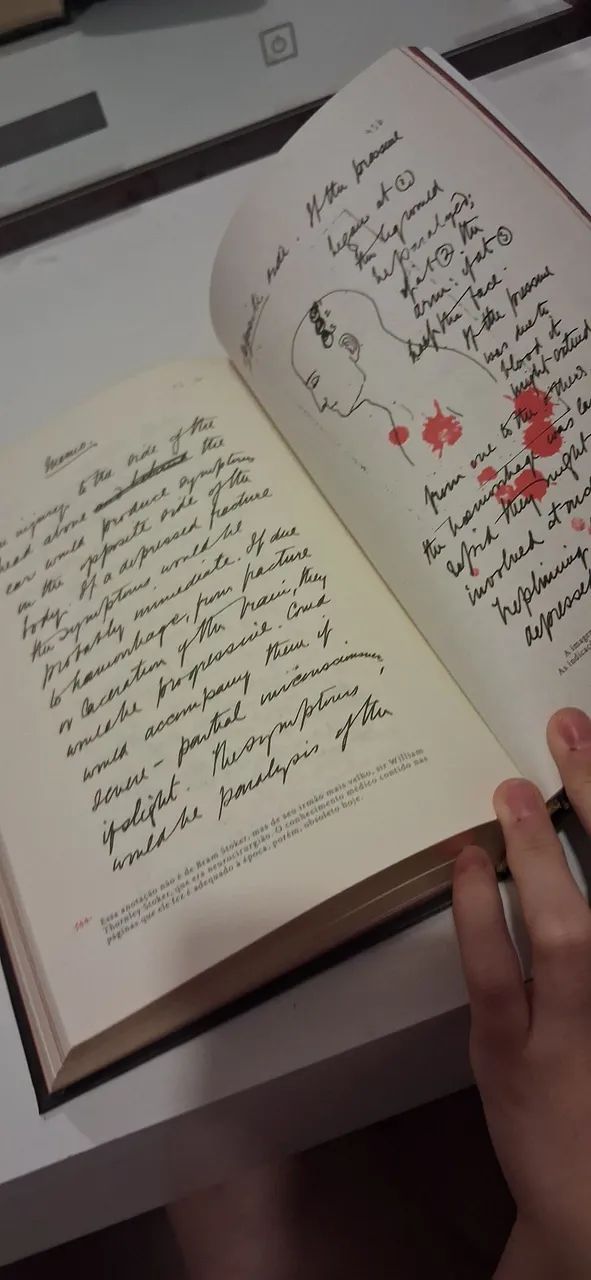 Memo.
injury to the side of the
head above the
ear would produce symptoms
in the opposite side of the
body. If a depressed fracture
the symptoms would be
probably immediate. If due
to hæmorrhage, from fracture
or laceration of the brain, they
would be progressive. Coma
would accompany them if
severe - partial unconsciousness
if slight. The symptoms
would be paralysis of the
144. Essa anotação não é de Bram Stoker, mas de seu irmão mais velho, sir William
Thornley Stoker, que era neurocirurgião. O conhecimento médico contido nas
páginas que ele fez é adequado à época, porém, obsoleto hoje.
opposite side. If the pressure
began at ①
the leg would
be paralysed;
if at ② the
arm: if at ③
the face.
If the pressure
was due to
blood it
might extend
from one to the others
the hæmorrhage was
rapid they might
involved at once
trephining
depressed
A imagem
As indicaçõ